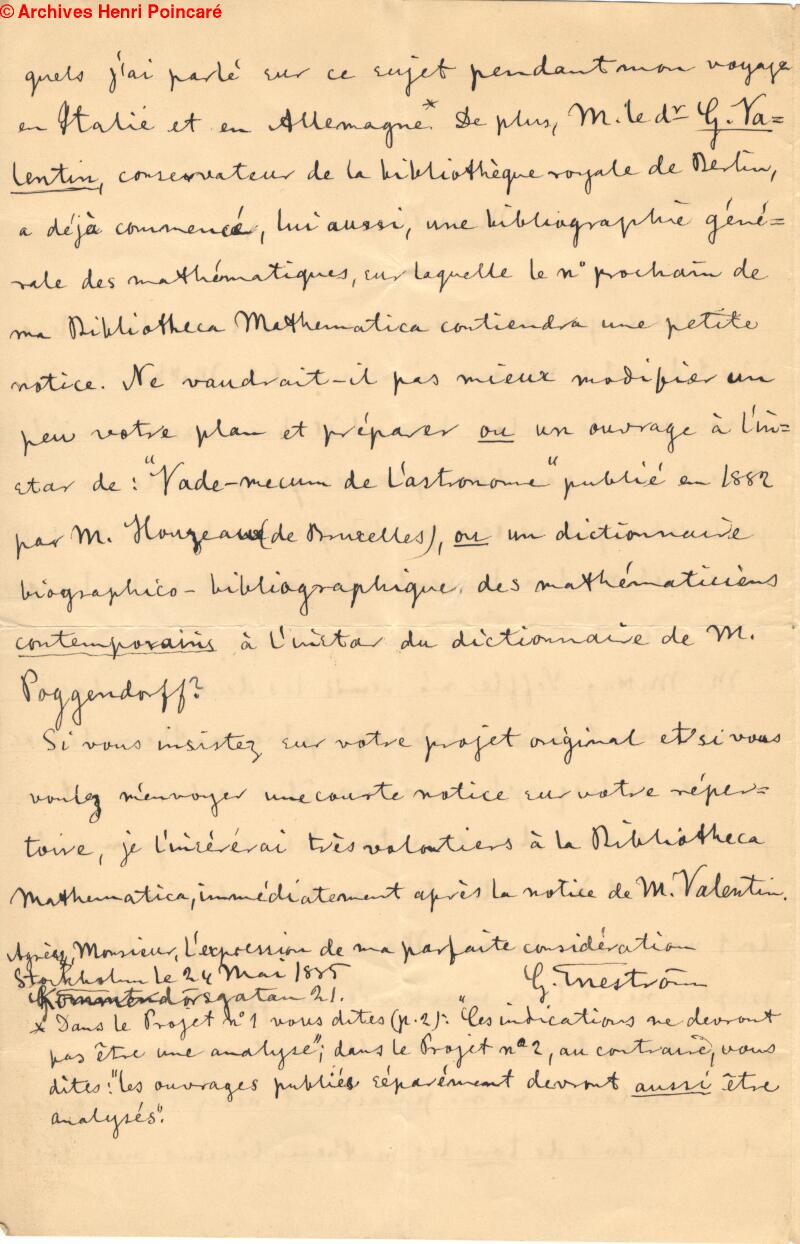 © Archives Henri Poincaré
quels j'ai parlé sur ce sujet pendant mon voyage
en Italie et en Allemagne.* De plus, M. le dr G. Va=
lentin, conservateur de la bibliothèque royale de Berlin,
a déjà commencé, lui aussi, une bibliographie géné-
rale des mathématiques, sur laquelle le n° prochain de
ma Bibliotheca Mathematica contiendra une petite
notice. Ne vaudrait-il pas mieux modifier un
peu votre plan et préparer ou un ouvrage à l'in=
star de: "Vade-mecum de l'astronome" publié en 1882
par M. Houzeau (de Bruxelles), ou un dictionnaire
biographico-bibliographique des mathématiciens
contemporains à l'instar du dictionnaire de M.
Poggendorff?
Si vous insistez sur votre projet original et si vous
voulez m'envoyer une courte notice sur votre réper=
toire, je l'insérérai très volontiers à la Bibliotheca
Mathematica, immédiatement après la notice de M. Valentin.
Agréez, Monsieur, l'expression de ma parfaite considération
Stockholm le 24 Mai 1885
G. Eneström
Kommendörsgatan 21.
* Dans le Projet n° 1 vous dites (p. 2): "Ces indications ne devront
pas être une analyse"; dans le Projet n° 2, au contraire, vous
dites: "les ouvrages publiés séparément devront aussi être
analysés".